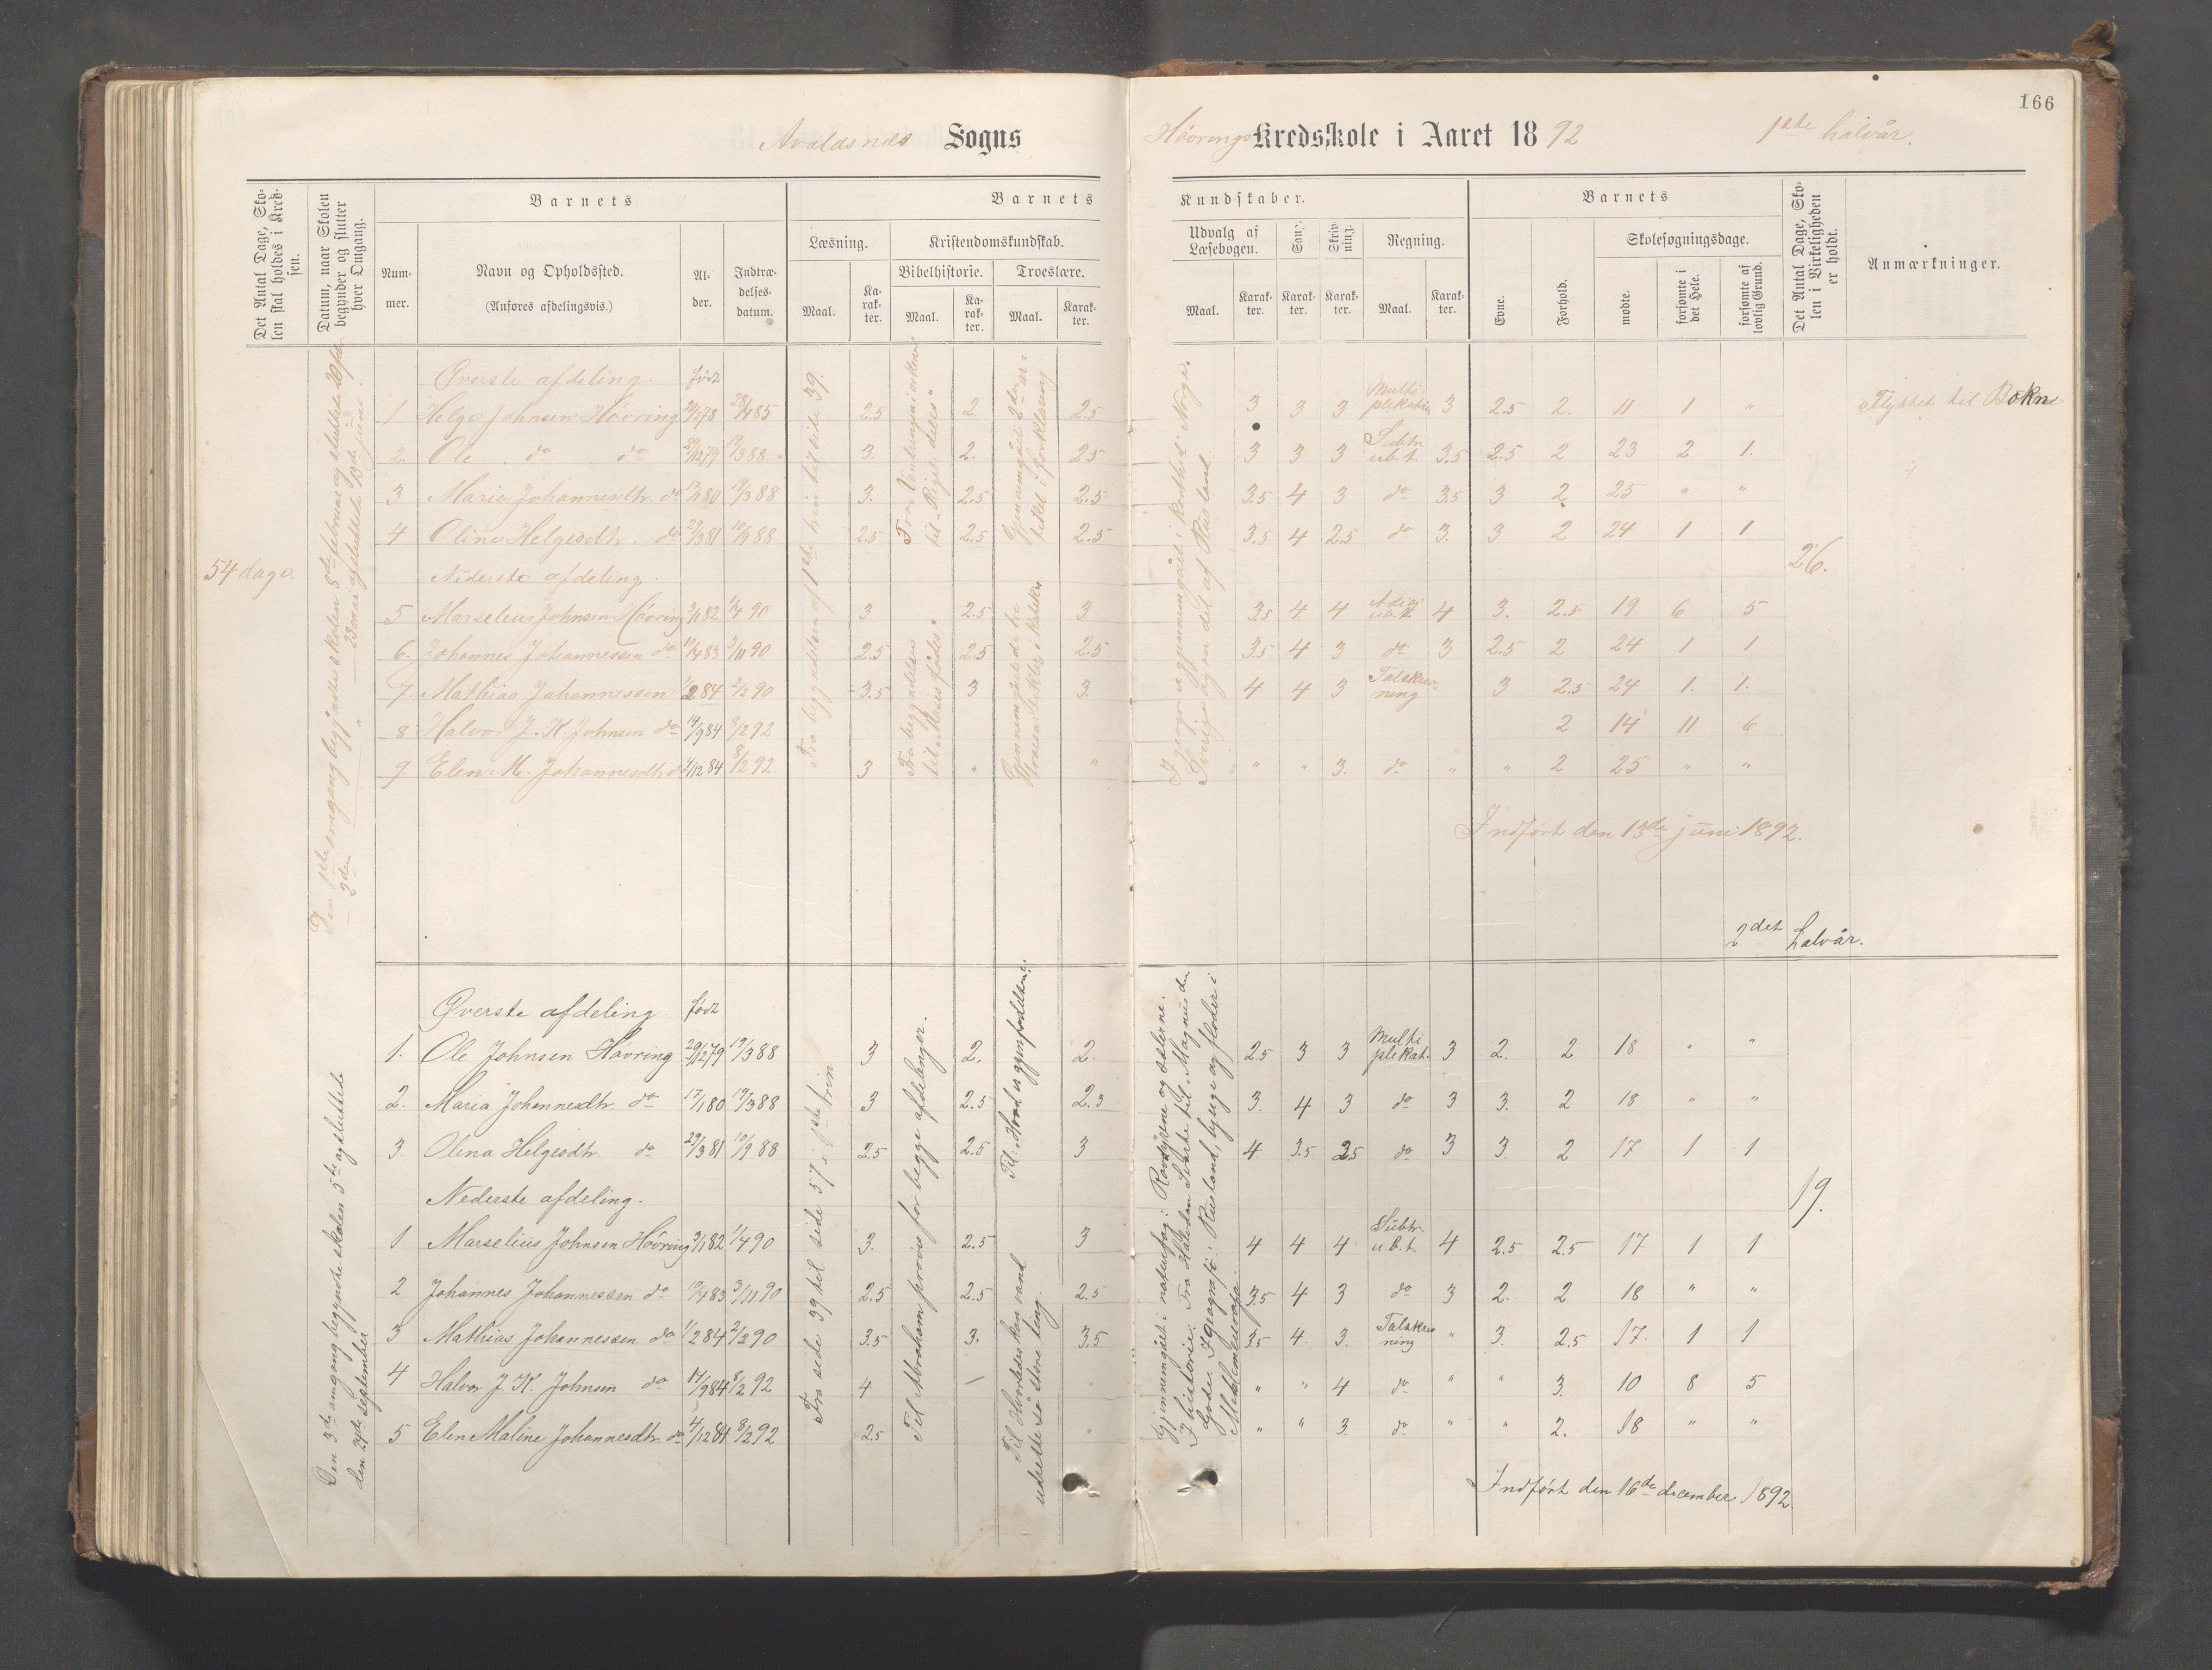 166
Avaldsnes Sogns Høvrings Kredsskole i Aaret 1892 1ste halvår.
Det Antal Dage, Skolen skal holdes i Kredsen.
Datum, naar Skolen begynder og slutter hver Omgang.
Barnets
Nummer.
Navn og Opholdssted.
(Anføres afdelingsvis.)
Alder.
Indtrædelsesdatum.
Barnets Kundskaber.
Læsning.
Maal.
Karakter.
Kristendomskundskab.
Bibelhistorie.
Maal.
Karakter.
Troeslære.
Maal.
Karakter.
Udvalg af Læsebogen.
Maal.
Karakter.
Sang.
Karakter.
Skrivning.
Karakter.
Regning.
Maal.
Karakter.
Barnets
Evne.
Forhold.
Skolesøgningsdage.
mødte.
forsømte i det Hele.
forsømte af lovlig Grund.
Det Antal Dage, Skolen i Virkeligheden er holdt.
Anmærkninger.
54 dage.
Øverste afdeling. født
1 Helge Johnsen Høvring 28/4 85 2.5 2. 2.5 3 3 3 Multiplikation 3 2.5 2. 11 1 " Flyttet til Bokn
2. Ole do do 29/12 79 19/3 88 3. 2. 2.5 3 3 3 Subtr. ub. t. 3.5 2.5 2 23 2 1.
3 Maria Johannesdtr. do 17/1 80 19/3 88 3. 2.5 2.5 3.5 4 3 do 3.5 3 2 25 " "
4 Oline Helgesdtr. do 29/3 81 10/9 88 2.5 2.5 2.5 3.5 4 2.5 do 3. 3 2 24 1 1
26.
Nederste afdeling.
5 Marselius Johnsen Høvring 3/1 82 1/4 90 3 2.5 3 3.5 4 4 4 3. 2.5 19 6 5
6. Johannes Johannessen do 19/4 83 3/11 90 2.5 2.5 2.5 3.5 4 3 do 3 2.5 2 24 1 1
7. Mathias Johannessen 1/2 84 2/2 90 3.5 3 3. 4 4 3 Talskrivning 3 2.5 24 1. 1.
8 Halvor J. K. Johnsen do 14/9 84 8/2 92 2 14 11 6
9. Elen M. Johannesdtr. do 4/12 84 8/2 92. 3 " " " " 3. do " " 2 25 " "
Fra begyndelsen af 1ste trin til side 39.
Indført den 13de juni 1892.
2det halvår.
Øverste afdeling. født
1. Ole Johnsen Høvring 29/12 79 19/3 88 3 2. 2. 2.5 3 3 Multiplikat. 3 2. 2 18 " "
2. Maria Johannesdtr. do 17/1 80 19/3 88 3 2.5 2.3 3. 4 3 do 3 3. 2 18 " "
3. Olena Helgesdtr. do 29/3 81 10/9 88 2.5 2.5 3 4. 3.5 2.5 do 3 3. 2 17 1 1
19.
Nederste afdeling.
1 Marselius Johnsen Høvring 3/1 82 1/4 90 3. 2.5 3 4 4 4 Subtr. u.b.t. 4 2.5 2.5 17 1 1
2 Johannes Johannessen do 19/4 83 3/11 90 2.5 2.5 2.5 3.5 4 3 do 3 2. 2 18 " "
3 Mathias Johannessen do 1/2 84 2/2 90 3.5 3. 3.5 3.5 4. 3. Talskrivning " 3. 2.5 17. 1 1
4 Halvor J. K. Johnsen do 14/9 84 8/2 92 4 — " " 4 do " " 3. 10 8 5
5 Elen Maline Johannesdtr. do 4/12 84 8/2 92 2.5 " " " 3. do " " 2. 18 " "
Den 3die omgang begyndte skolen 5te og sluttede
september
Fra side 39 til side 57 i 1ste trin
Til Abraham prøves for begge afdelinger.
Til Hvorledes kan vand
udrette så store ting.
Gjennemgået i naturfag: Rovdyrene og sælerne.
I historie: Fra Halvdan Svarte til Magnus den
Gode. I geografi: Rusland, byer og floder i
Mellemeuropa.
Indført den 16de december 1892.